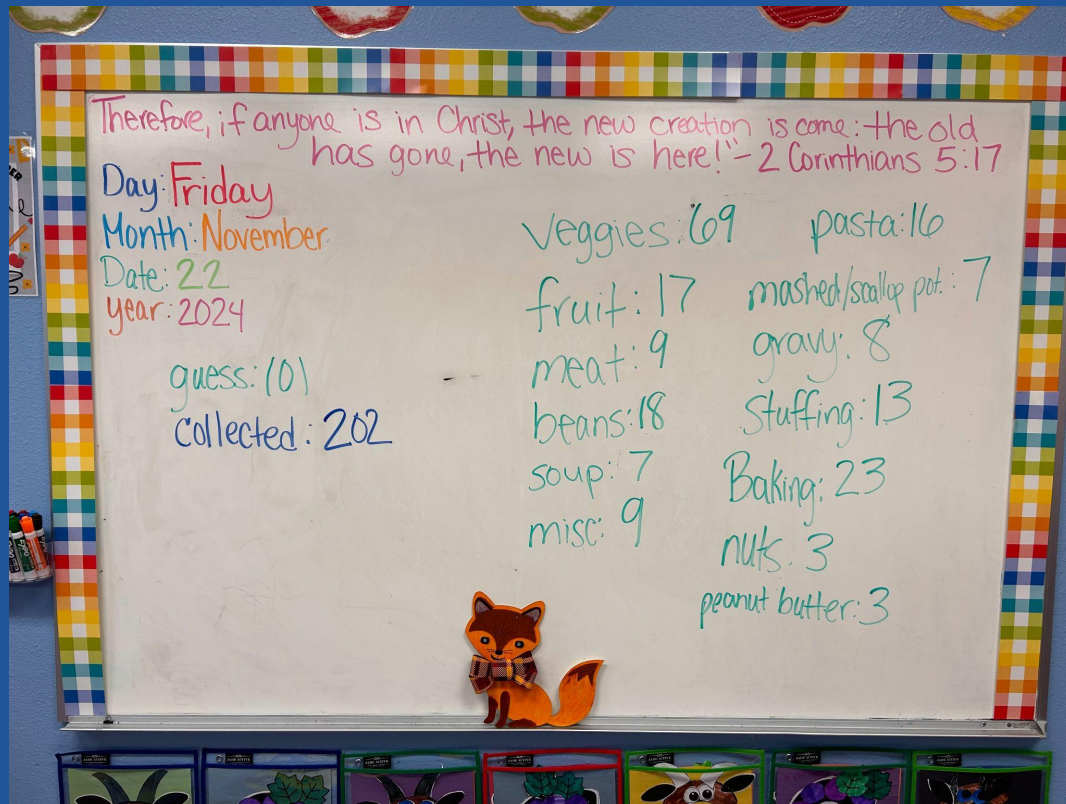 Therefore, if anyone is in Christ, the new creation is come: the old
has gone, the new is here!" - 2 Corinthians 5:17
Day: Friday
Month: November
Date: 22
year: 2024
guess: 101
collected: 202
Veggies: 69
fruit: 17
meat: 9
beans: 18
soup: 7
misc: 9
pasta: 16
mashed/scallop pot.: 7
gravy: 8
Stuffing: 13
Baking: 23
nuts: 3
peanut butter: 3